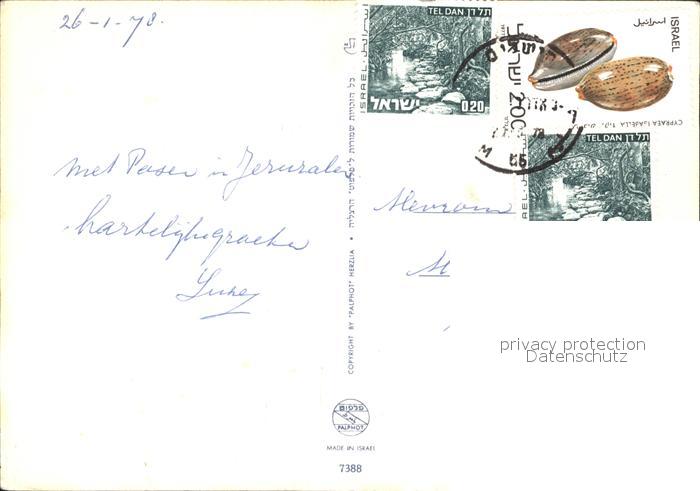 26-1-78.
met Pasen in Jeruzalem
hartelijke groeten
Mevrouw
M
תל דן TEL DAN
ISRAEL
ישראל 0.20
ISRAEL اسرائيل
CYPRAEA ISABELLA
TEL DAN תל דן
COPYRIGHT BY "PALPHOT" HERZLIA • כל הזכויות שמורות ל"פלפוט" הרצליה
privacy protection
Datenschutz
פלפוט
PALPHOT
MADE IN ISRAEL
7388